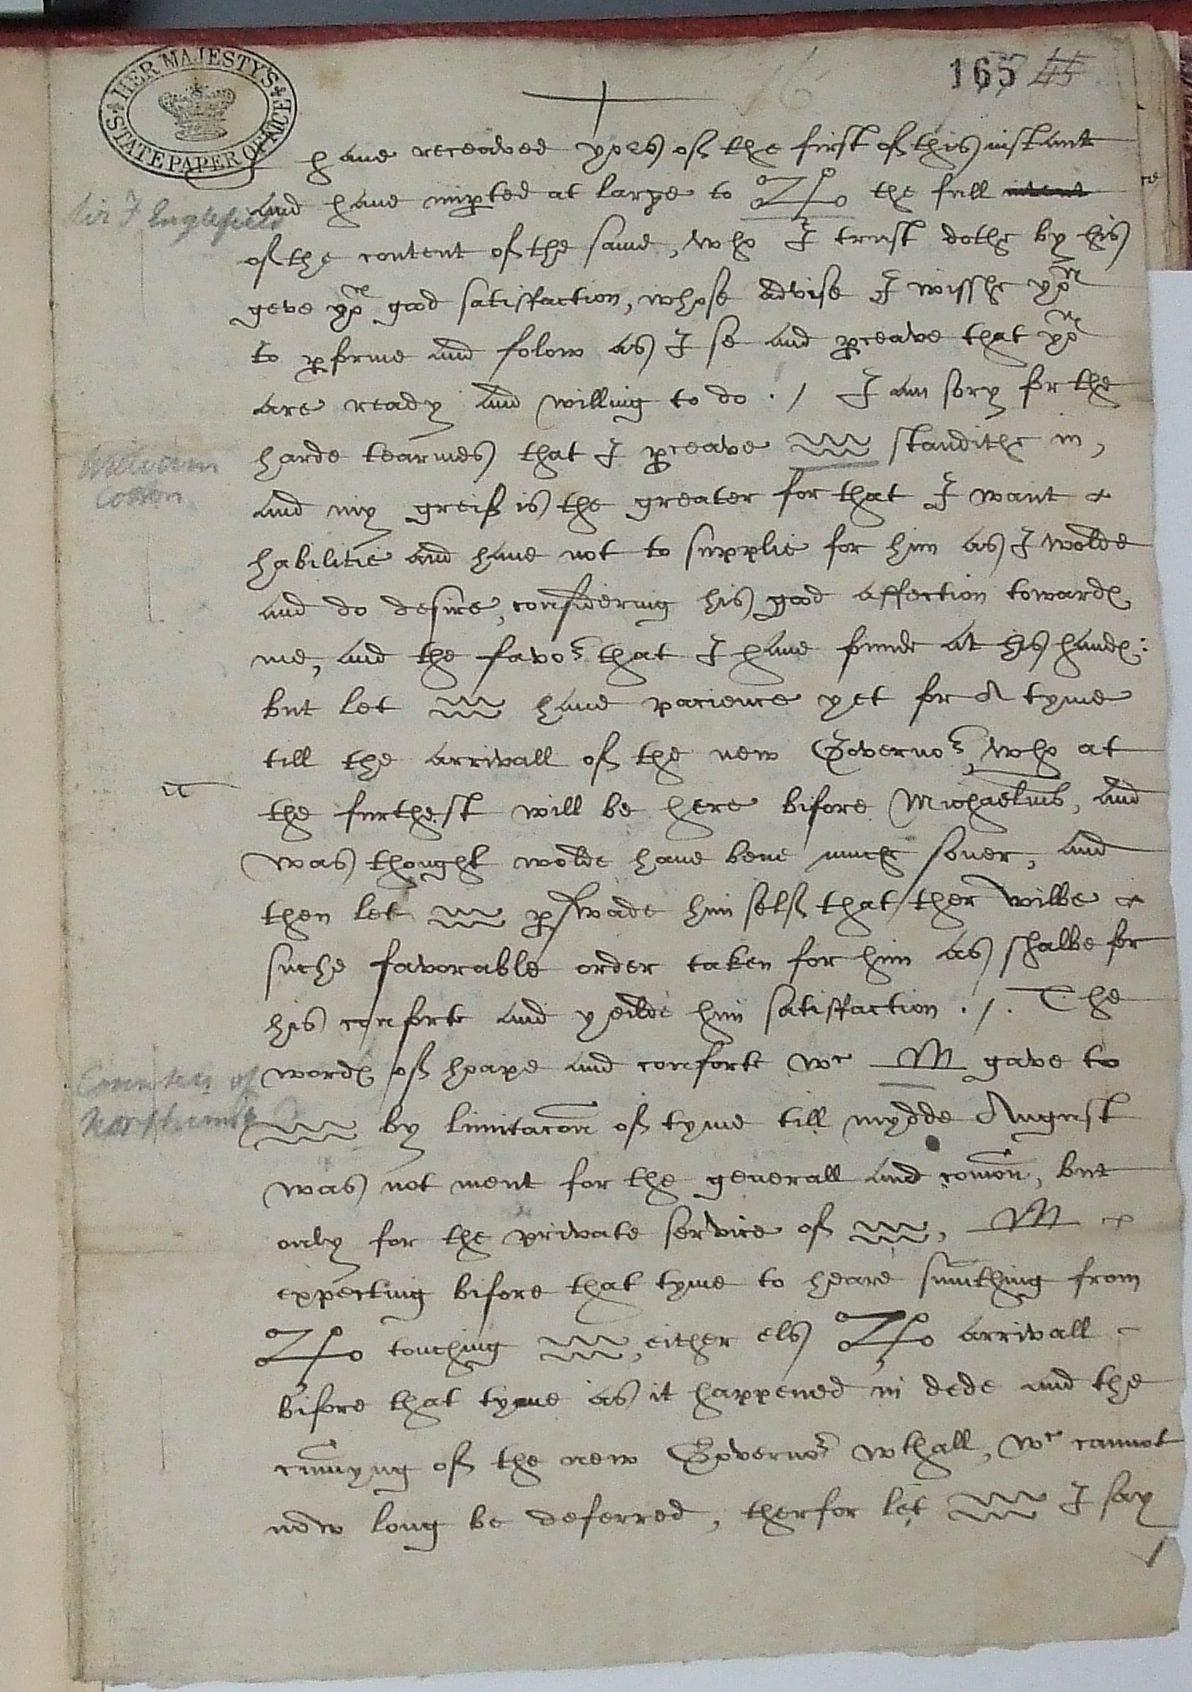 HER MAJESTY'S STATE PAPER OFFICE
165 45
16
I have receaved yors of the first of this instant
and have imprted at large to the full intent
Sir F Englefield
of the content of the same, who I trust dothe by his
geve you good satisfaction, whose advise I wisshe you
to pforme and folow as I se and pceave that you
are ready and willing to do ./ I am sory for the
harde tearmes that I pceave standithe in,
William
Cotton
and my greif is the greater for that I want
habilitie and have not to supplie for him as I wolde
and do desire, considering his good affection towards
me, and the favor that I have founde at his hands:
but let have pacience yet for a tyme
till the arrivall of the new Governor, who at
the furthest will be here bifore Michaelms, and
was thought wolde have bene much soner, and
then let pswade him self that ther wilbe
suche favorable order taken for him as shalbe for
his conforte and yeilde him satisfaction ./. The
words of hoape and conforte wc M gave to
Countess of
Northumb
by limitacon of tyme till mydde August
was not ment for the generall and comon, but
only for the private service of , M
expecting bifore that tyme to heare sumthing from
touching , either els arrivall
bifore that tyme as it happened in dede and the
cumyng of the new Governor wthall, wc cannot
now long be deferred, therfor let I say